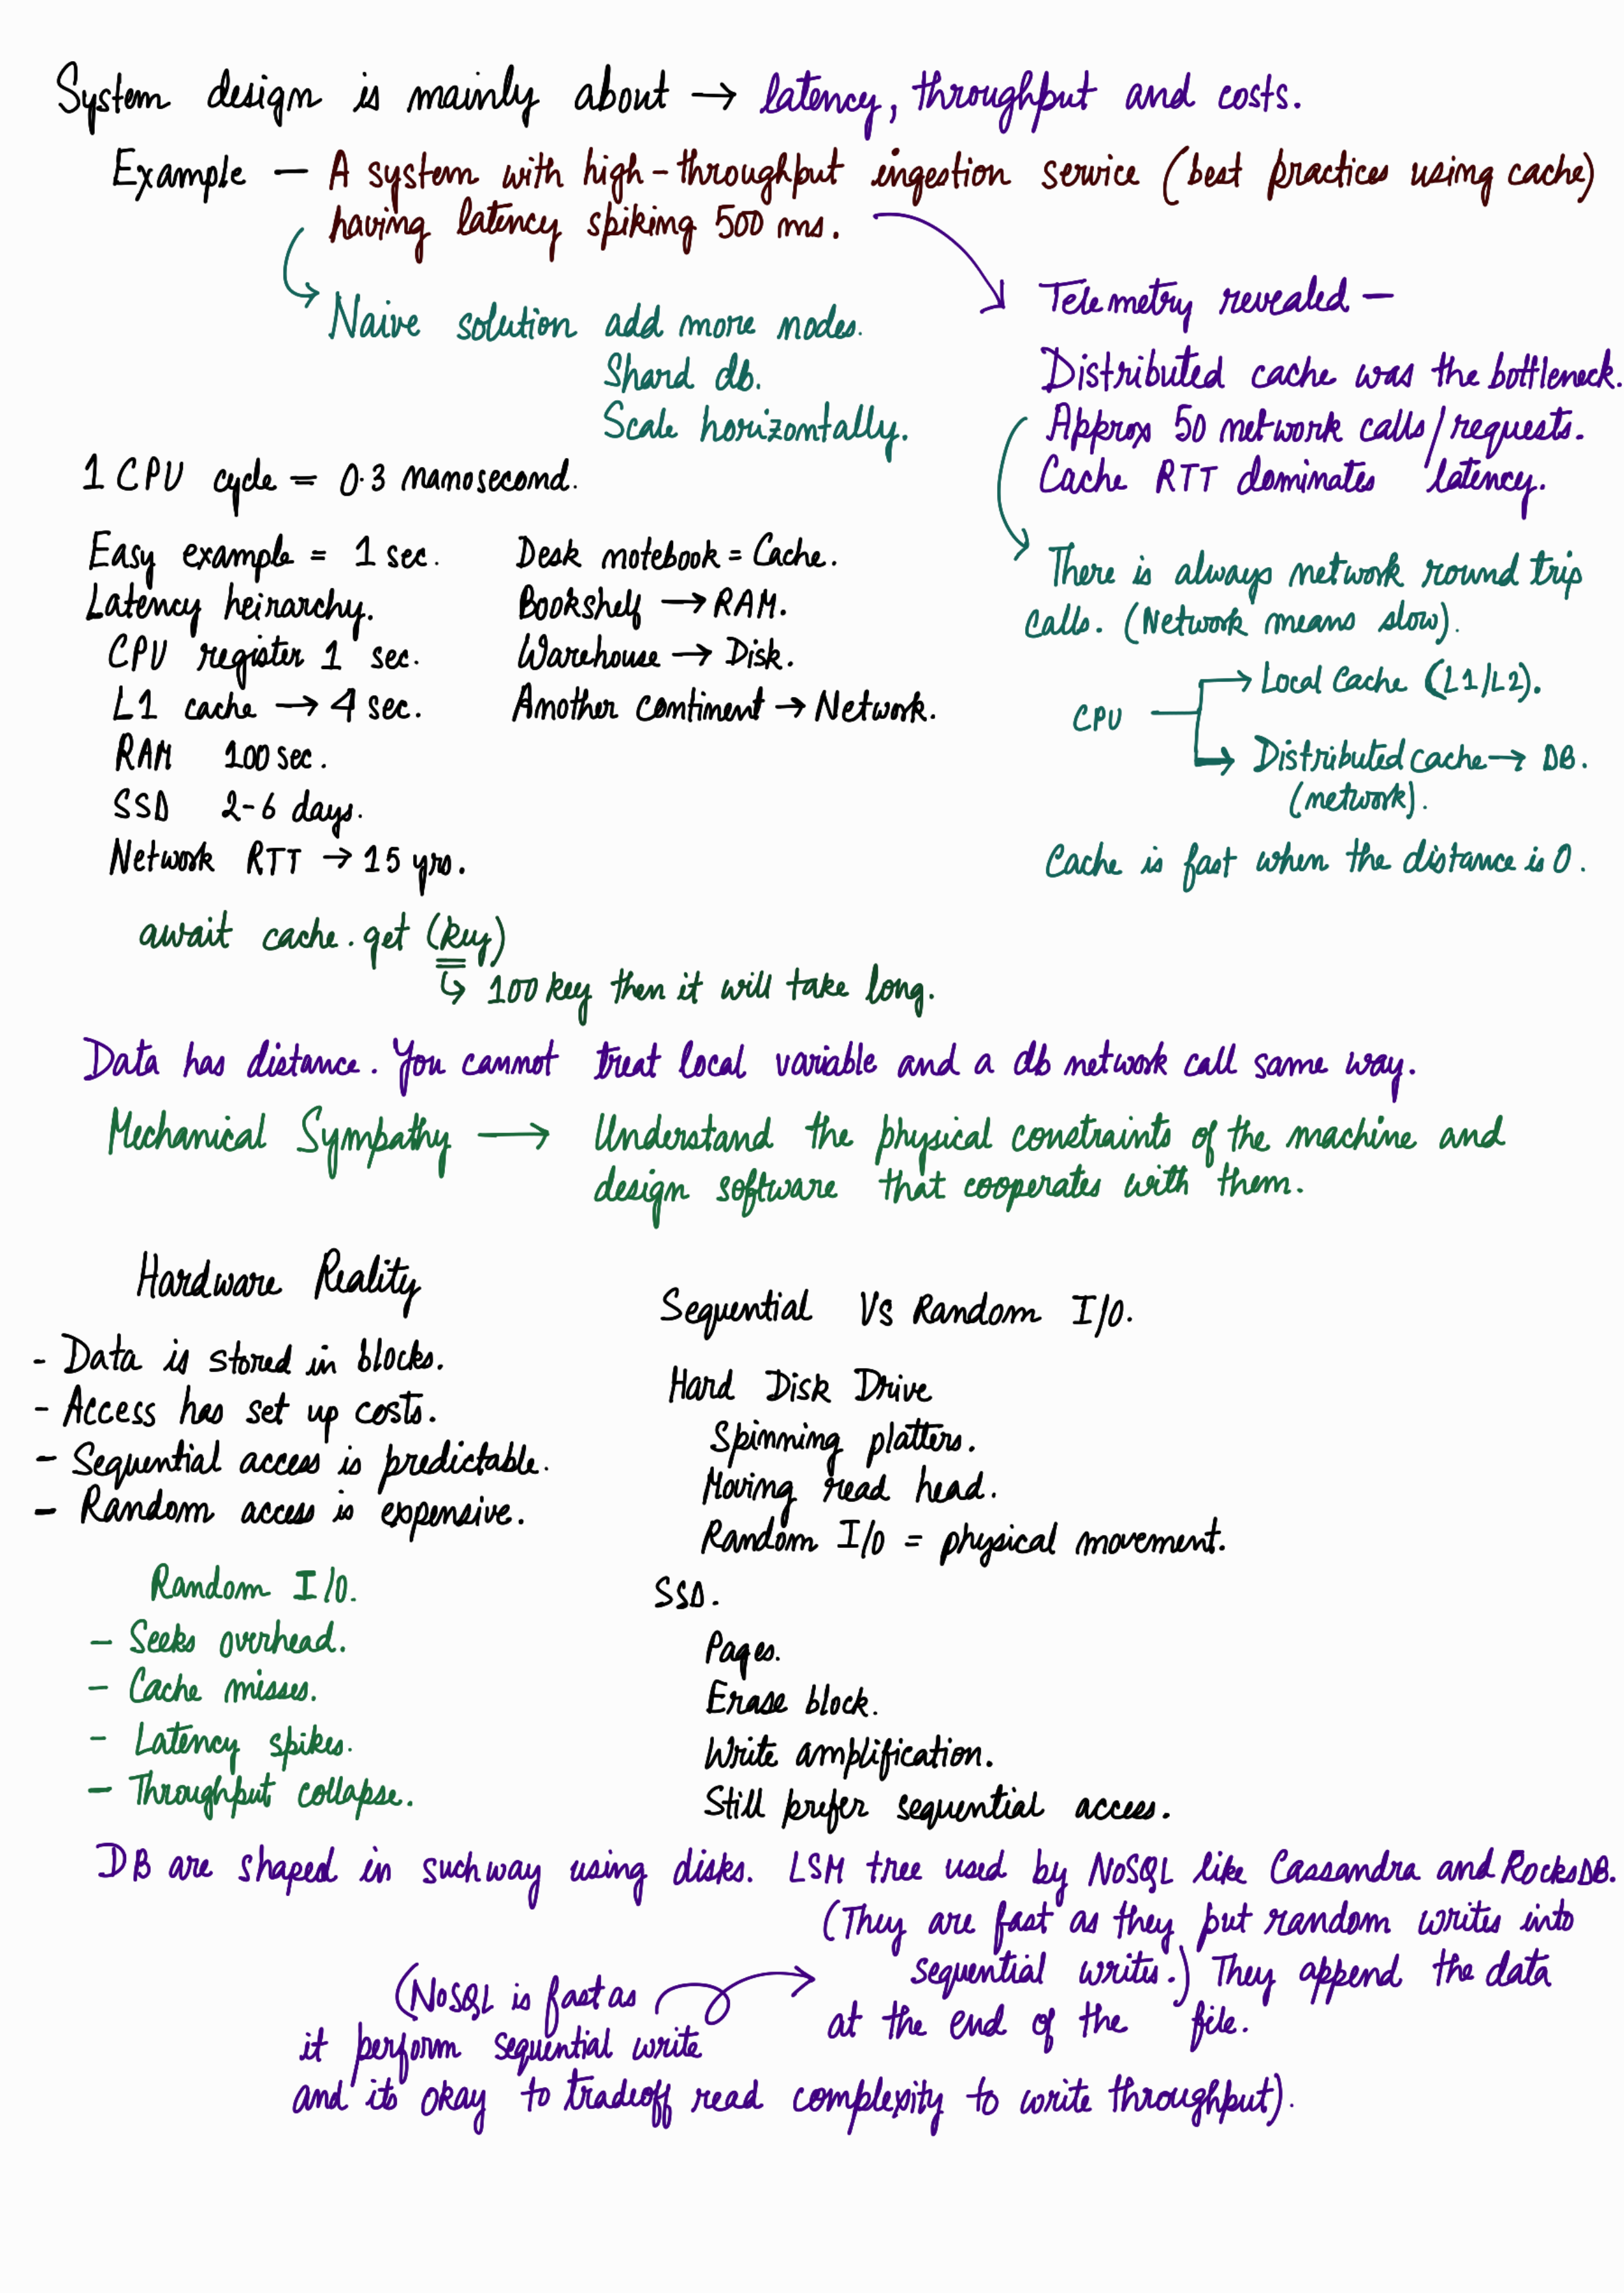 System design is mainly about → latency, throughput and costs.
Example — A system with high-throughput ingestion service (best practices using cache)
having latency spiking 500 ms.
Naive solution add more nodes.
Shard db.
Scale horizontally.
Telemetry revealed —
Distributed cache was the bottleneck.
Approx 50 network calls/requests.
Cache RTT dominates latency.
There is always network round trip
calls. (Network means slow).
CPU
Local Cache (L1/L2).
Distributed cache → DB.
(network).
Cache is fast when the distance is 0.
1 CPU cycle = 0.3 nanosecond.
Easy example = 1 sec.
Latency heirarchy.
CPU register 1 sec.
L1 cache → 4 sec.
RAM 100 sec.
SSD 2-6 days.
Network RTT → 15 yrs.
Desk notebook = Cache.
Bookshelf → RAM.
Warehouse → Disk.
Another continent → Network.
await cache.get (key)
↳ 100 key then it will take long.
Data has distance. You cannot treat local variable and a db network call same way.
Mechanical Sympathy → Understand the physical constraints of the machine and
design software that cooperates with them.
Hardware Reality
- Data is stored in blocks.
- Access has set up costs.
- Sequential access is predictable.
- Random access is expensive.
Random I/O.
- Seeks overhead.
- Cache misses.
- Latency spikes.
- Throughput collapse.
Sequential Vs Random I/O.
Hard Disk Drive
Spinning platters.
Moving read head.
Random I/O = physical movement.
SSD.
Pages.
Erase block.
Write amplification.
Still prefer sequential access.
DB are shaped in such way using disks. LSM tree used by NoSQL like Cassandra and RocksDB.
(They are fast as they put random writes into
sequential writes.) They append the data
at the end of the file.
(NoSQL is fast as
it perform sequential write
and its okay to tradeoff read complexity to write throughput).